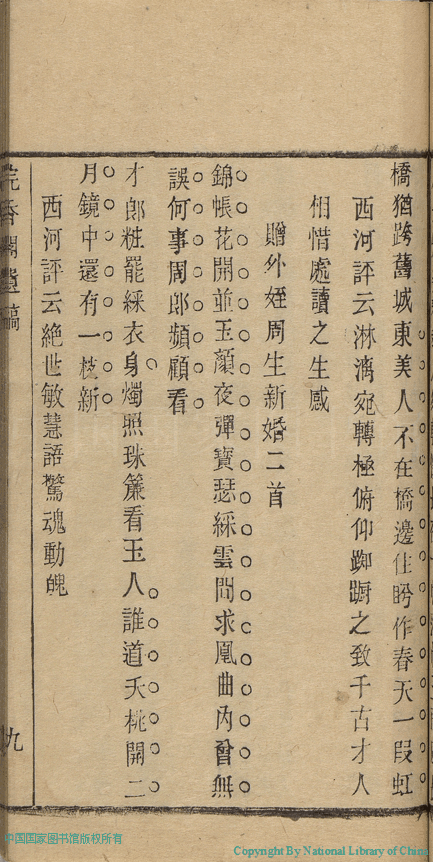 橋猶跨舊城東美人不在橋邊住盻作春天一段虹
西河評云淋漓宛轉極俯仰踟蹰之致千古才人
相惜處讀之生感
贈外姪周生新婚二首
錦帳花開並玉顏夜彈寶瑟綵雲間求凰曲內曾無
誤何事周郎頻顧看
才郎粧罷綵衣身燭照珠簾看玉人誰道夭桃開二
月鏡中還有一枝新
西河評云絕世敏慧語驚魂動魄
九
中国国家图书馆版权所有
Copyright By National Library of China